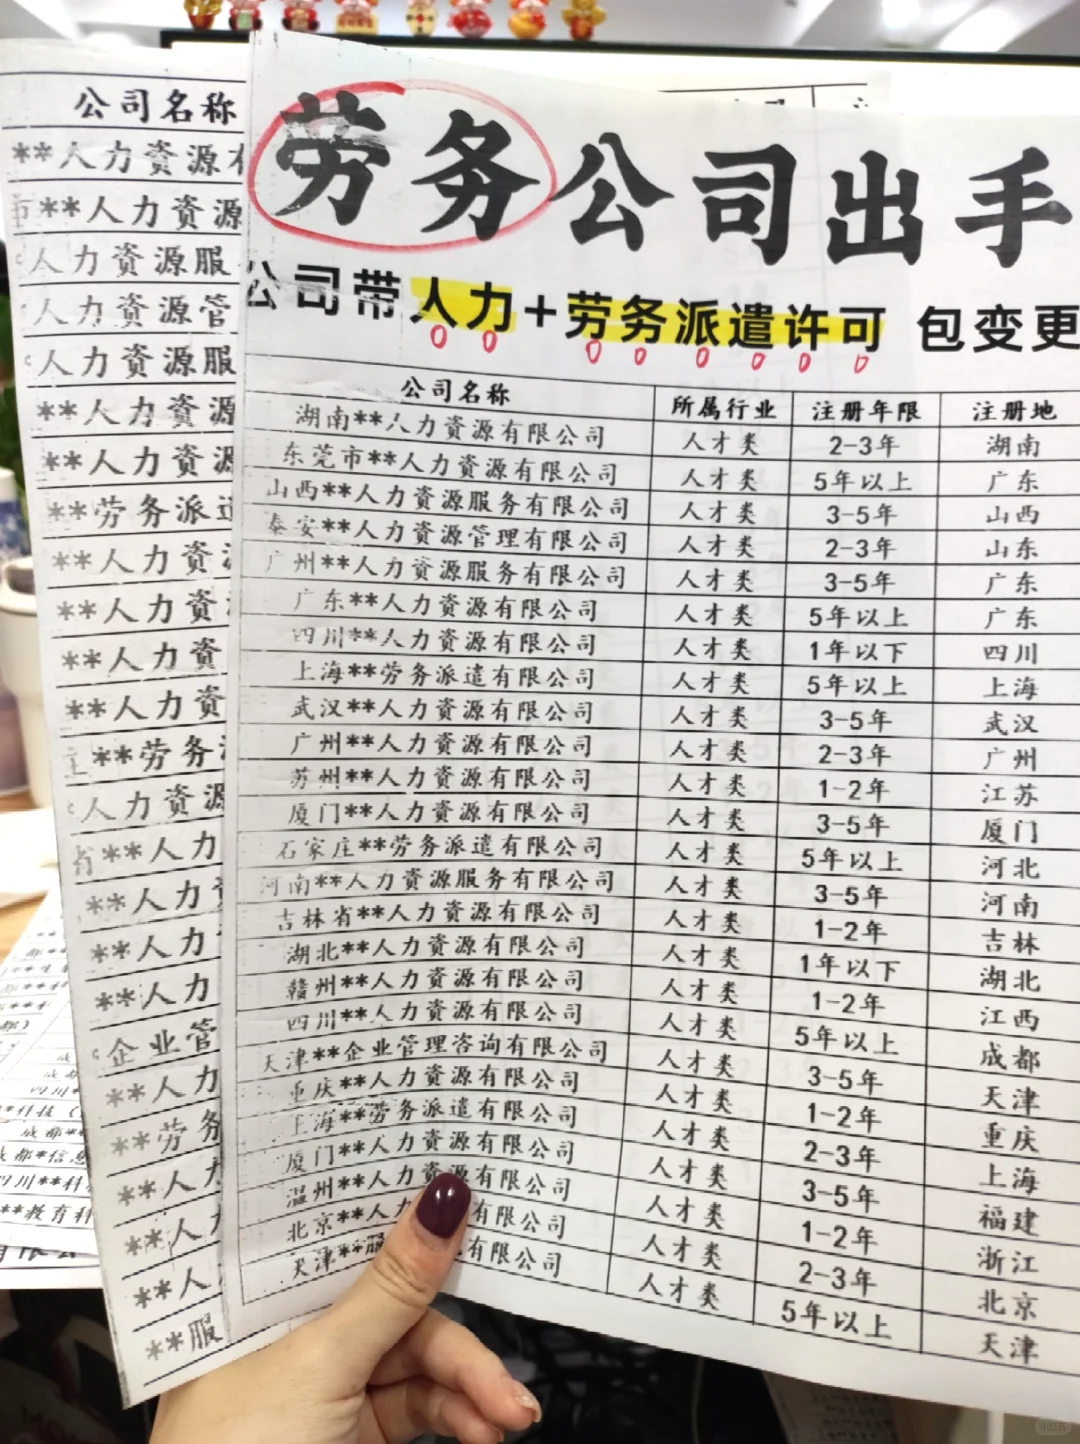 劳务公司出手
公司带人力+劳务派遣许可 包变更
公司名称 所属行业 注册年限 注册地
湖南**人力资源有限公司 人才类 2-3年 湖南
东莞市**人力资源有限公司 人才类 5年以上 广东
山西**人力资源服务有限公司 人才类 3-5年 山西
泰安**人力资源管理有限公司 人才类 2-3年 山东
广州**人力资源服务有限公司 人才类 3-5年 广东
广东**人力资源有限公司 人才类 5年以上 广东
四川**人力资源有限公司 人才类 1年以下 四川
上海**劳务派遣有限公司 人才类 5年以上 上海
武汉**人力资源有限公司 人才类 3-5年 武汉
广州**人力资源有限公司 人才类 2-3年 广州
苏州**人力资源有限公司 人才类 1-2年 江苏
厦门**人力资源有限公司 人才类 3-5年 厦门
石家庄**劳务派遣有限公司 人才类 5年以上 河北
河南**人力资源服务有限公司 人才类 3-5年 河南
吉林省**人力资源有限公司 人才类 1-2年 吉林
湖北**人力资源有限公司 人才类 1年以下 湖北
赣州**人力资源有限公司 人才类 1-2年 江西
四川**人力资源有限公司 人才类 5年以上 成都
天津**企业管理咨询有限公司 人才类 3-5年 天津
重庆**人力资源有限公司 人才类 1-2年 重庆
上海**劳务派遣有限公司 人才类 2-3年 上海
厦门**人力资源有限公司 人才类 3-5年 福建
温州**人力资源有限公司 人才类 1-2年 浙江
北京**人力 有限公司 人才类 2-3年 北京
天津**服 有限公司 人才类 5年以上 天津
公司名称
**人力资源有
市**人力资源
人力资源服
人力资源管
人力资源服
**人力资源
**人力资源
**劳务派遣
**人力资源
**人力资
**人力资
**人力资
**劳务
人力资源
省**人力
**人力资
**人力
**人力
企业管
**人力
**劳务
**人力
**人力
**人
**服